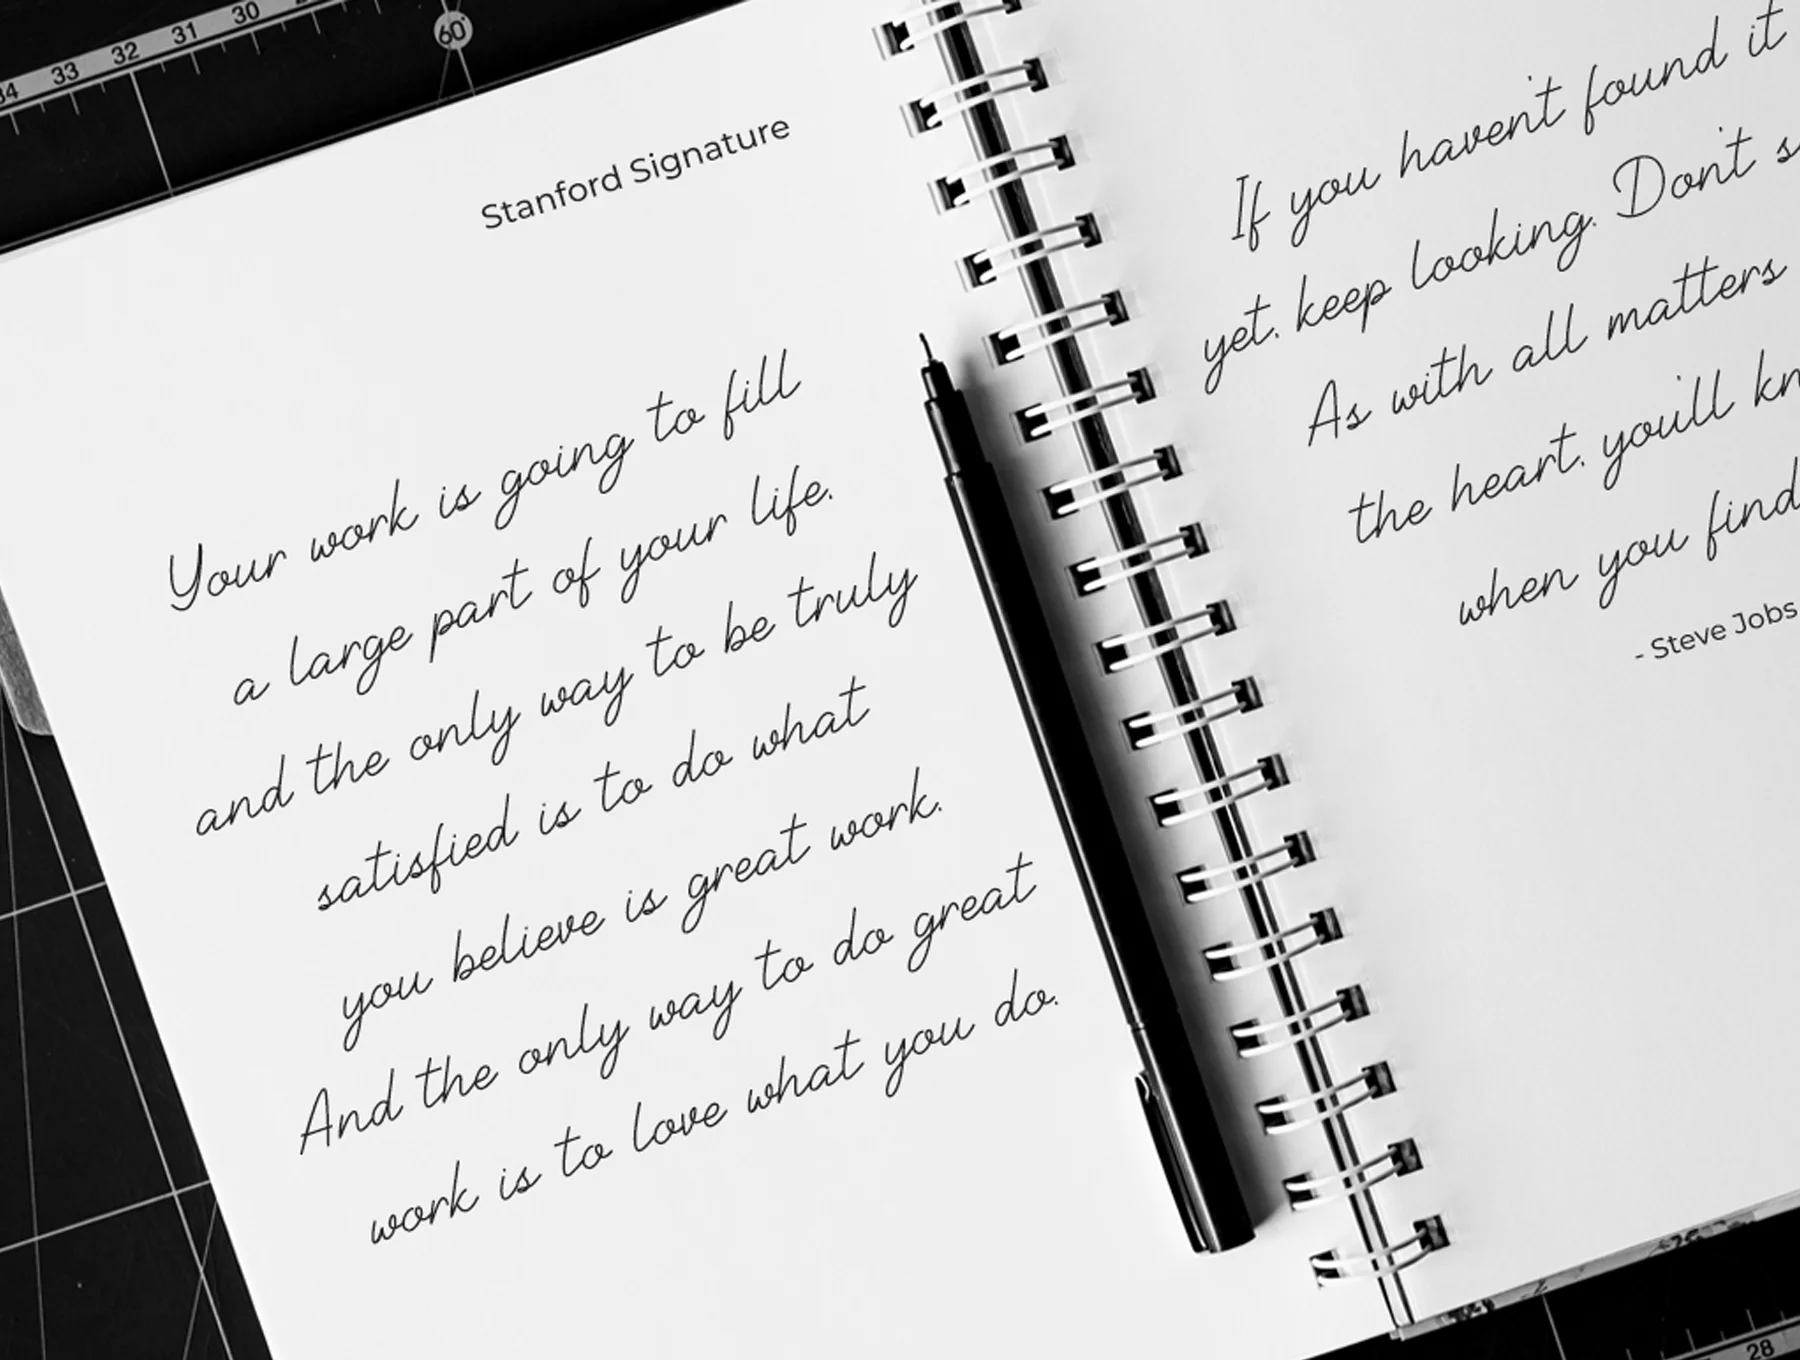 34 33 32 31 30
60°
Stanford Signature
Your work is going to fill
a large part of your life.
and the only way to be truly
satisfied is to do what
you believe is great work.
And the only way to do great
work is to love what you do.
If you haven't found it
yet. keep looking. Don't
As with all matters
the heart. you'll
when you find
- Steve Jobs
28